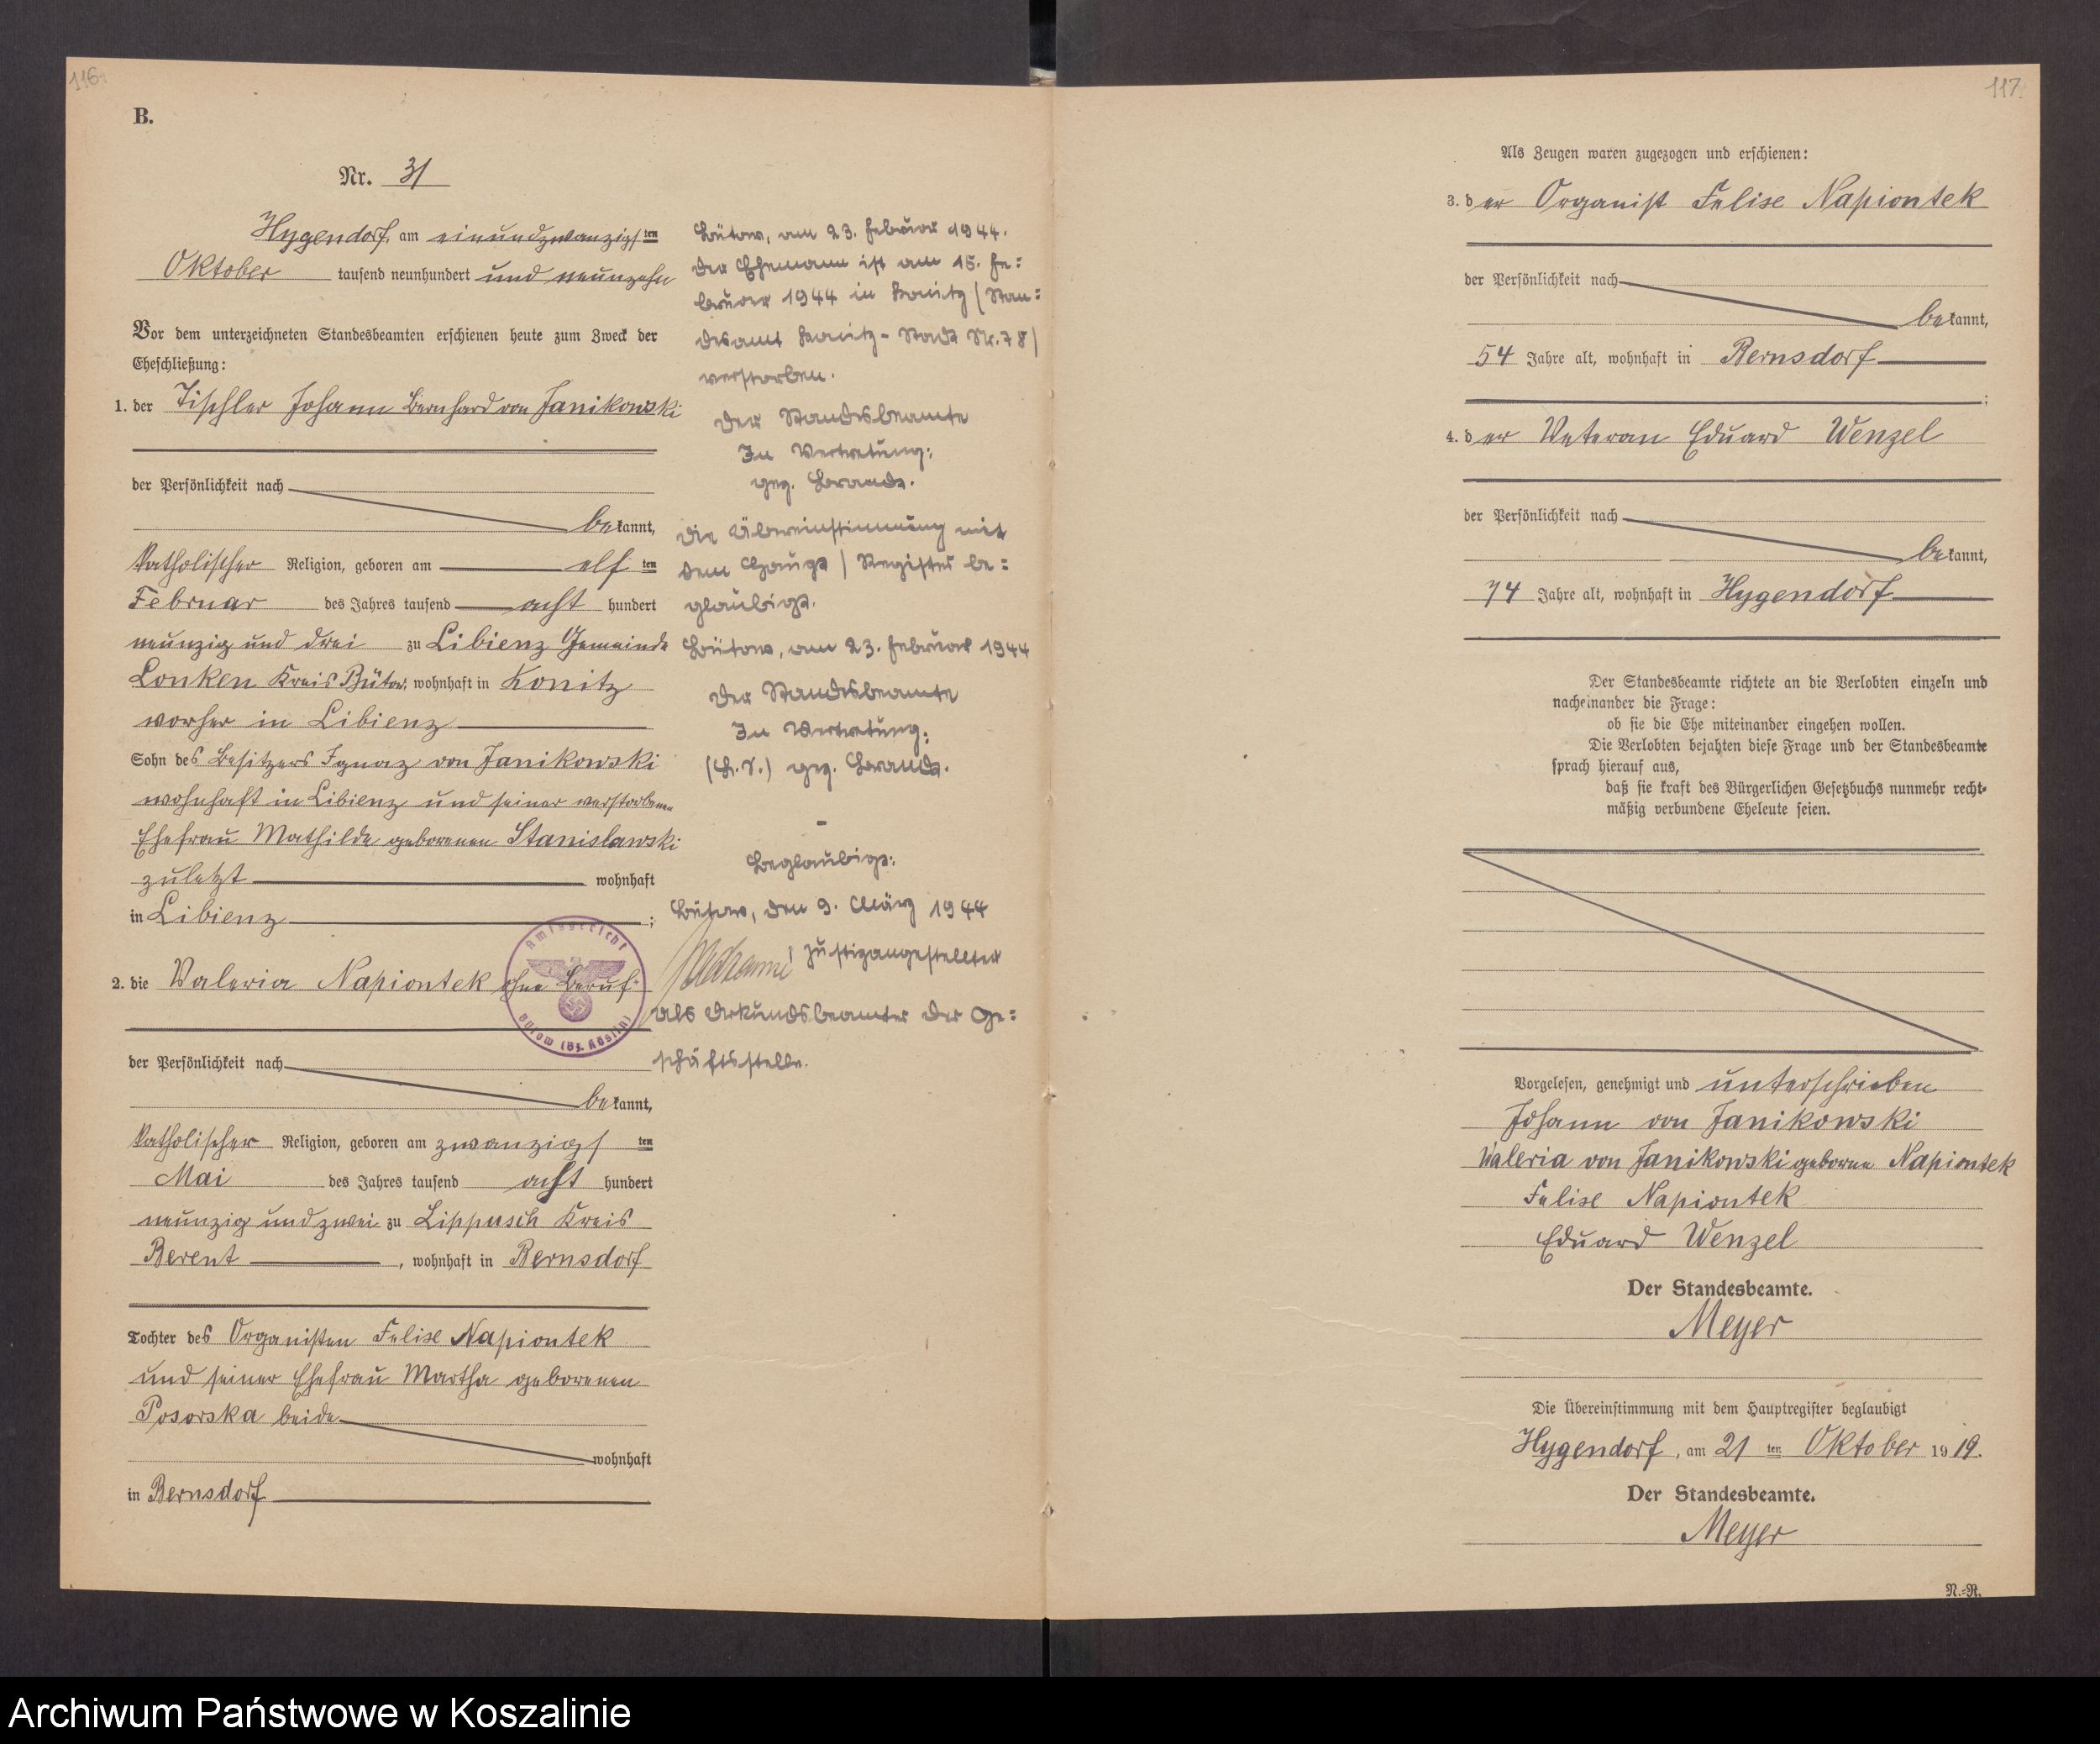 116.
B.
Nr. 31
Hygendorf, am einundzwanzigsten
Oktober tausend neunhundert und neunzehn
Vor dem unterzeichneten Standesbeamten erschienen heute zum Zweck der
Eheschließung:
1. der Tischler Johann Bernhard von Janikowski
der Persönlichkeit nach
bekannt,
katholischer Religion, geboren am elften
Februar des Jahres tausend acht hundert
neunzig und drei zu Libienz Gemeinde
Lonken Kreis Bütow, wohnhaft in Konitz
vorher in Libienz
Sohn des Besitzers Ignaz von Janikowski
wohnhaft in Libienz und seiner verstorbenen
Ehefrau Mathilde geborenen Stanislawski
zuletzt wohnhaft
in Libienz ;
2. die Valeria Napiontek ohne Beruf
der Persönlichkeit nach
bekannt,
katholischer Religion, geboren am zwanzigsten
Mai des Jahres tausend acht hundert
neunzig und zwei zu Lippusch Kreis
Berent, wohnhaft in Bernsdorf
Tochter des Organisten Felise Napiontek
und seiner Ehefrau Martha geborenen
Posorska beide
wohnhaft
in Bernsdorf
Bütow, am 23. Februar 1944.
Der Ehemann ist am 15. Fe=
bruar 1944 in Konitz (Stan=
desamt Konitz-Stadt Nr. 78)
verstorben.
Der Standesbeamte
In Vertretung:
gez. Brandt.
Die Übereinstimmung mit
dem Haupt / Register be=
glaubigt.
Bütow, am 23. Februar 1944
Der Standesbeamte
In Vertretung:
(L.S.) gez. Brandt.
Beglaubigt:
Bütow, den 9. März 1944
Justizangestellter
als Urkundsbeamter der Ge=
schäftsstelle.
Amtsgericht
Bütow (Bz. Köslin)
117.
Als Zeugen waren zugezogen und erschienen:
3. der Organist Felise Napiontek
der Persönlichkeit nach
bekannt,
54 Jahre alt, wohnhaft in Bernsdorf
;
4. der Veteran Eduard Wenzel
der Persönlichkeit nach
bekannt,
74 Jahre alt, wohnhaft in Hygendorf
Der Standesbeamte richtete an die Verlobten einzeln und
nacheinander die Frage:
ob sie die Ehe miteinander eingehen wollen.
Die Verlobten bejahten diese Frage und der Standesbeamte
sprach hierauf aus,
daß sie kraft des Bürgerlichen Gesetzbuchs nunmehr recht-
mäßig verbundene Eheleute seien.
Vorgelesen, genehmigt und unterschrieben
Johann von Janikowski
Valeria von Janikowski geborne Napiontek
Felise Napiontek
Eduard Wenzel
Der Standesbeamte.
Meyer
Die Übereinstimmung mit dem Hauptregister beglaubigt
Hygendorf, am 21 ten Oktober 1919.
Der Standesbeamte.
Meyer
N.-R.
Archiwum Państwowe w Koszalinie